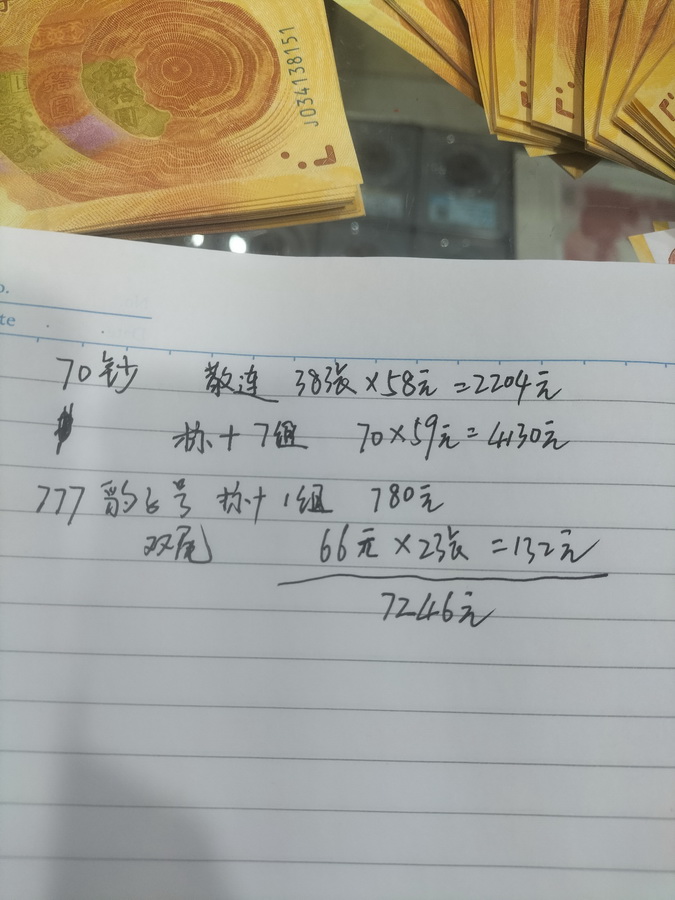 J034138151
o.
te
70钞 散连 38张×58元=2204元
标十7组 70×59元=4130元
777豹子号 标十1组 780元
双尾 66元×2张=132元
7246元